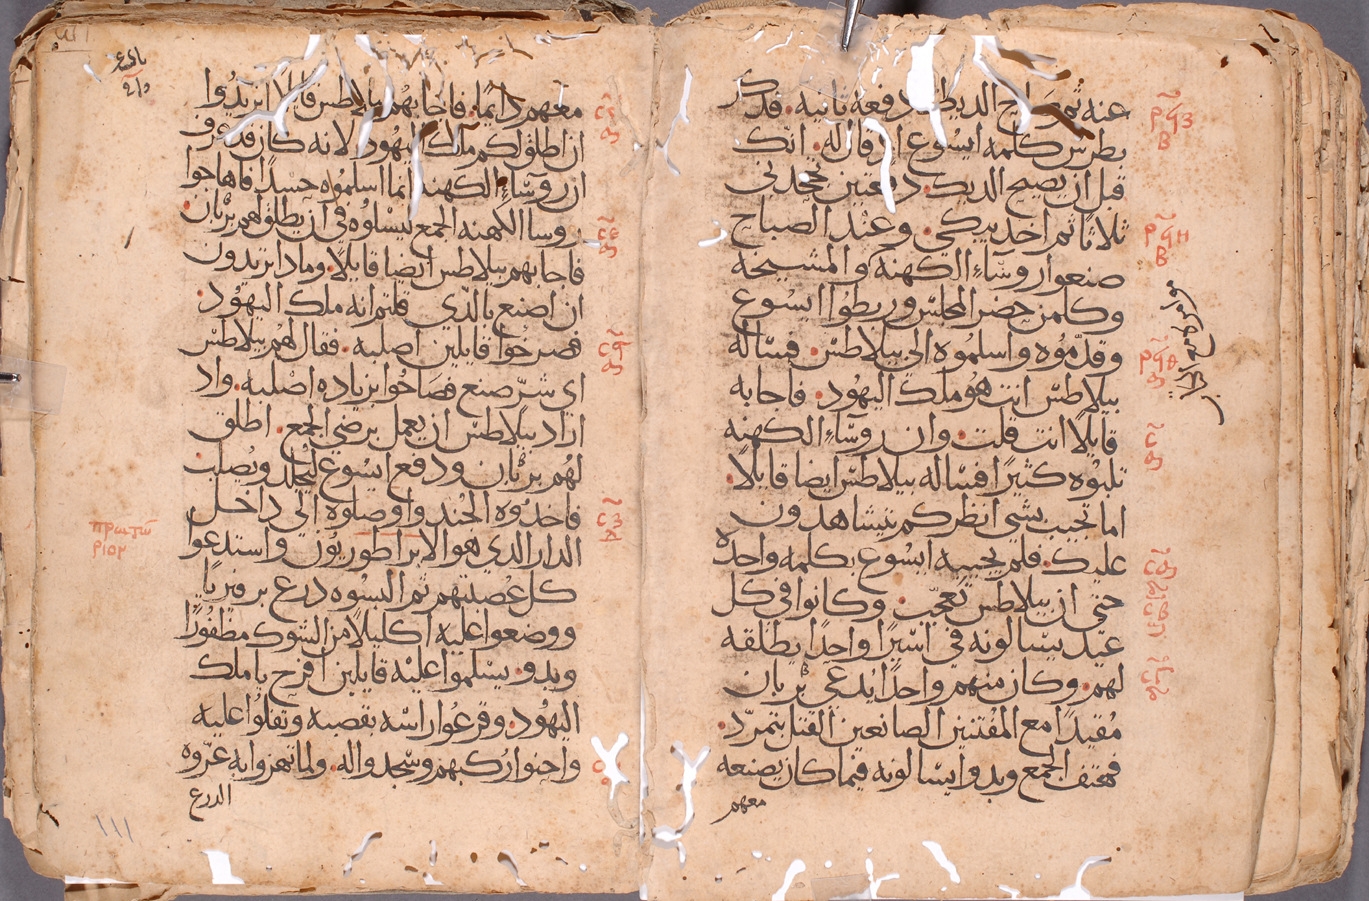 عنه ثم صاح الديك دفعه ثانيه. فذكر
بطرس كلمه ايسوع اذ قال له. انك
قبل ان يصيح الديك دفعتين تجحدني
ثلاثا ثم اخذ يبكي. وعند الصباح
صنعوا روساء الكهنه والمشيخه
وكلمن حضر المجلس وربطوا ايسوع
وقدموه واسلموه الى بيلاطس. فساله
بيلاطس انت هو ملك اليهود. فاجابه
قايلا انت قلت. وان روساء الكهنه
ثلبوه كثيرا فساله بيلاطس ايضا قايلا.
اما تجيب بشي انظر كم يشاهدون
عليك. فلم يجيبه ايسوع بكلمه واحده
حتى ان بيلاطس تعجب. وكانوا في كل
عيد يسالونه في اسيرا واحدا يطلقه
لهم. وكان منهم واحدا يدعي بربان
مقيدا مع المفتنين الصانعين القتل بتمرد.
فهتف الجمع وبدوا يسالونه فيما كان يصنعه
معهم
معهم دايما. فاجابهم بيلاطس قايلا اتريدوا
ان اطلق لكم ملك اليهود لانه كان قد عرف
ان روساء الكهنه انما اسلموه حسدا فاهاجوا
روسا الكهنه الجمع ليسالوه في ان يطلق لهم بربان.
فاجابهم بيلاطس ايضا قايلا. وماذا تريدون
ان اصنع بالذي قلتم انه ملك اليهود.
فصرخوا قايلين اصلبه. فقال لهم بيلاطس
اي شر صنع فصاحوا بزياده اصلبه. واذ
اراد بيلاطس ان يعمل برضى الجمع. اطلق
لهم بربان ودفع ايسوع ليجلد ويصلب
فاخذوه الجند واوصلوه الي داخل
الدار الذي هو الابراطوريون واستدعوا
كل عصبتهم ثم البسوه درع برفيريا
ووضعوا عليه اكليلا من الشوك مظفورا
وبدو يسلموا عليه قايلين افرح يا ملك
اليهود. وقرعوا راسه بقصبه وتفلوا عليه
واجثوا ركبهم وسجدوا له. ولما تهزوا به عروه
الدرع